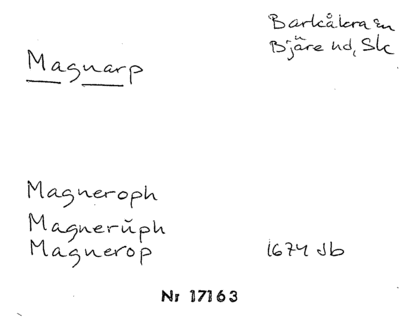 Barkåkra sn
Bjäre hd, Sk
Magnarp
Magneroph
Magnerŭph
Magnerop 1674 Jb
Nr 17163